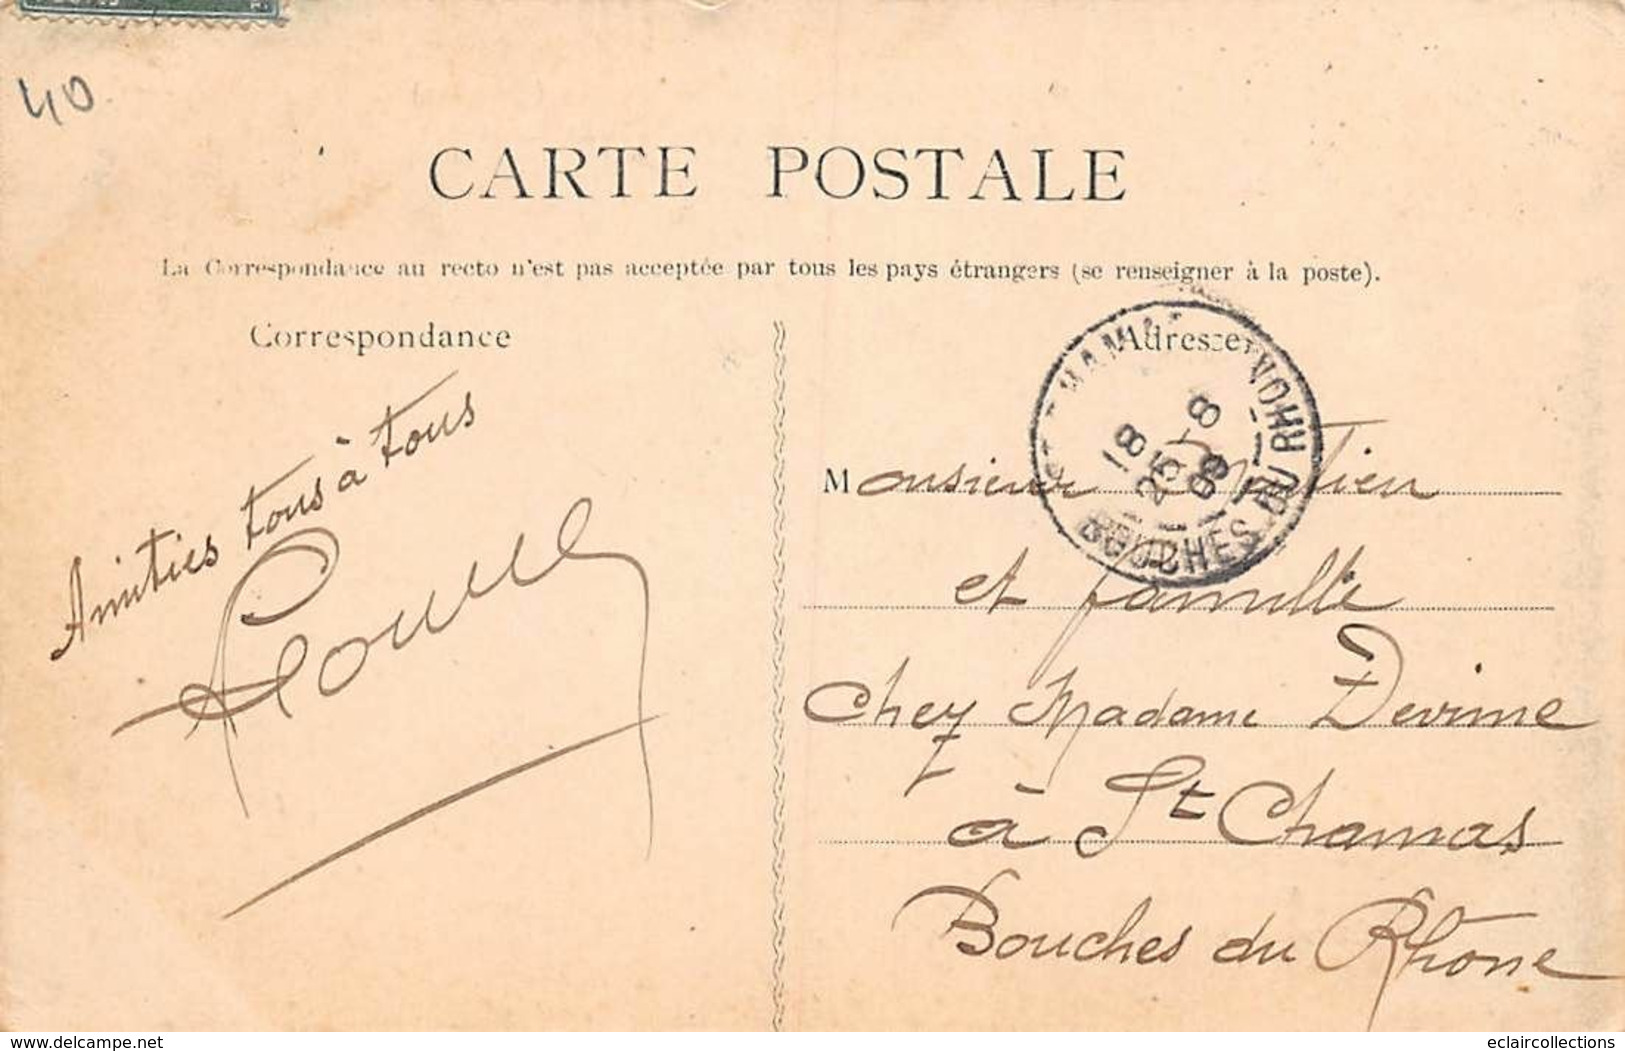 40
CARTE POSTALE
La Correspondance au recto n'est pas acceptée par tous les pays étrangers (se renseigner à la poste).
Correspondance
Adresse
Amitiés tous à tous
BOUCHES DU RHONE
18
25 -8
09
Monsieur
et famille
Chez Madame Devime
à St Chamas
Bouches du Rhône
www.delcampe.net
eclaircollections